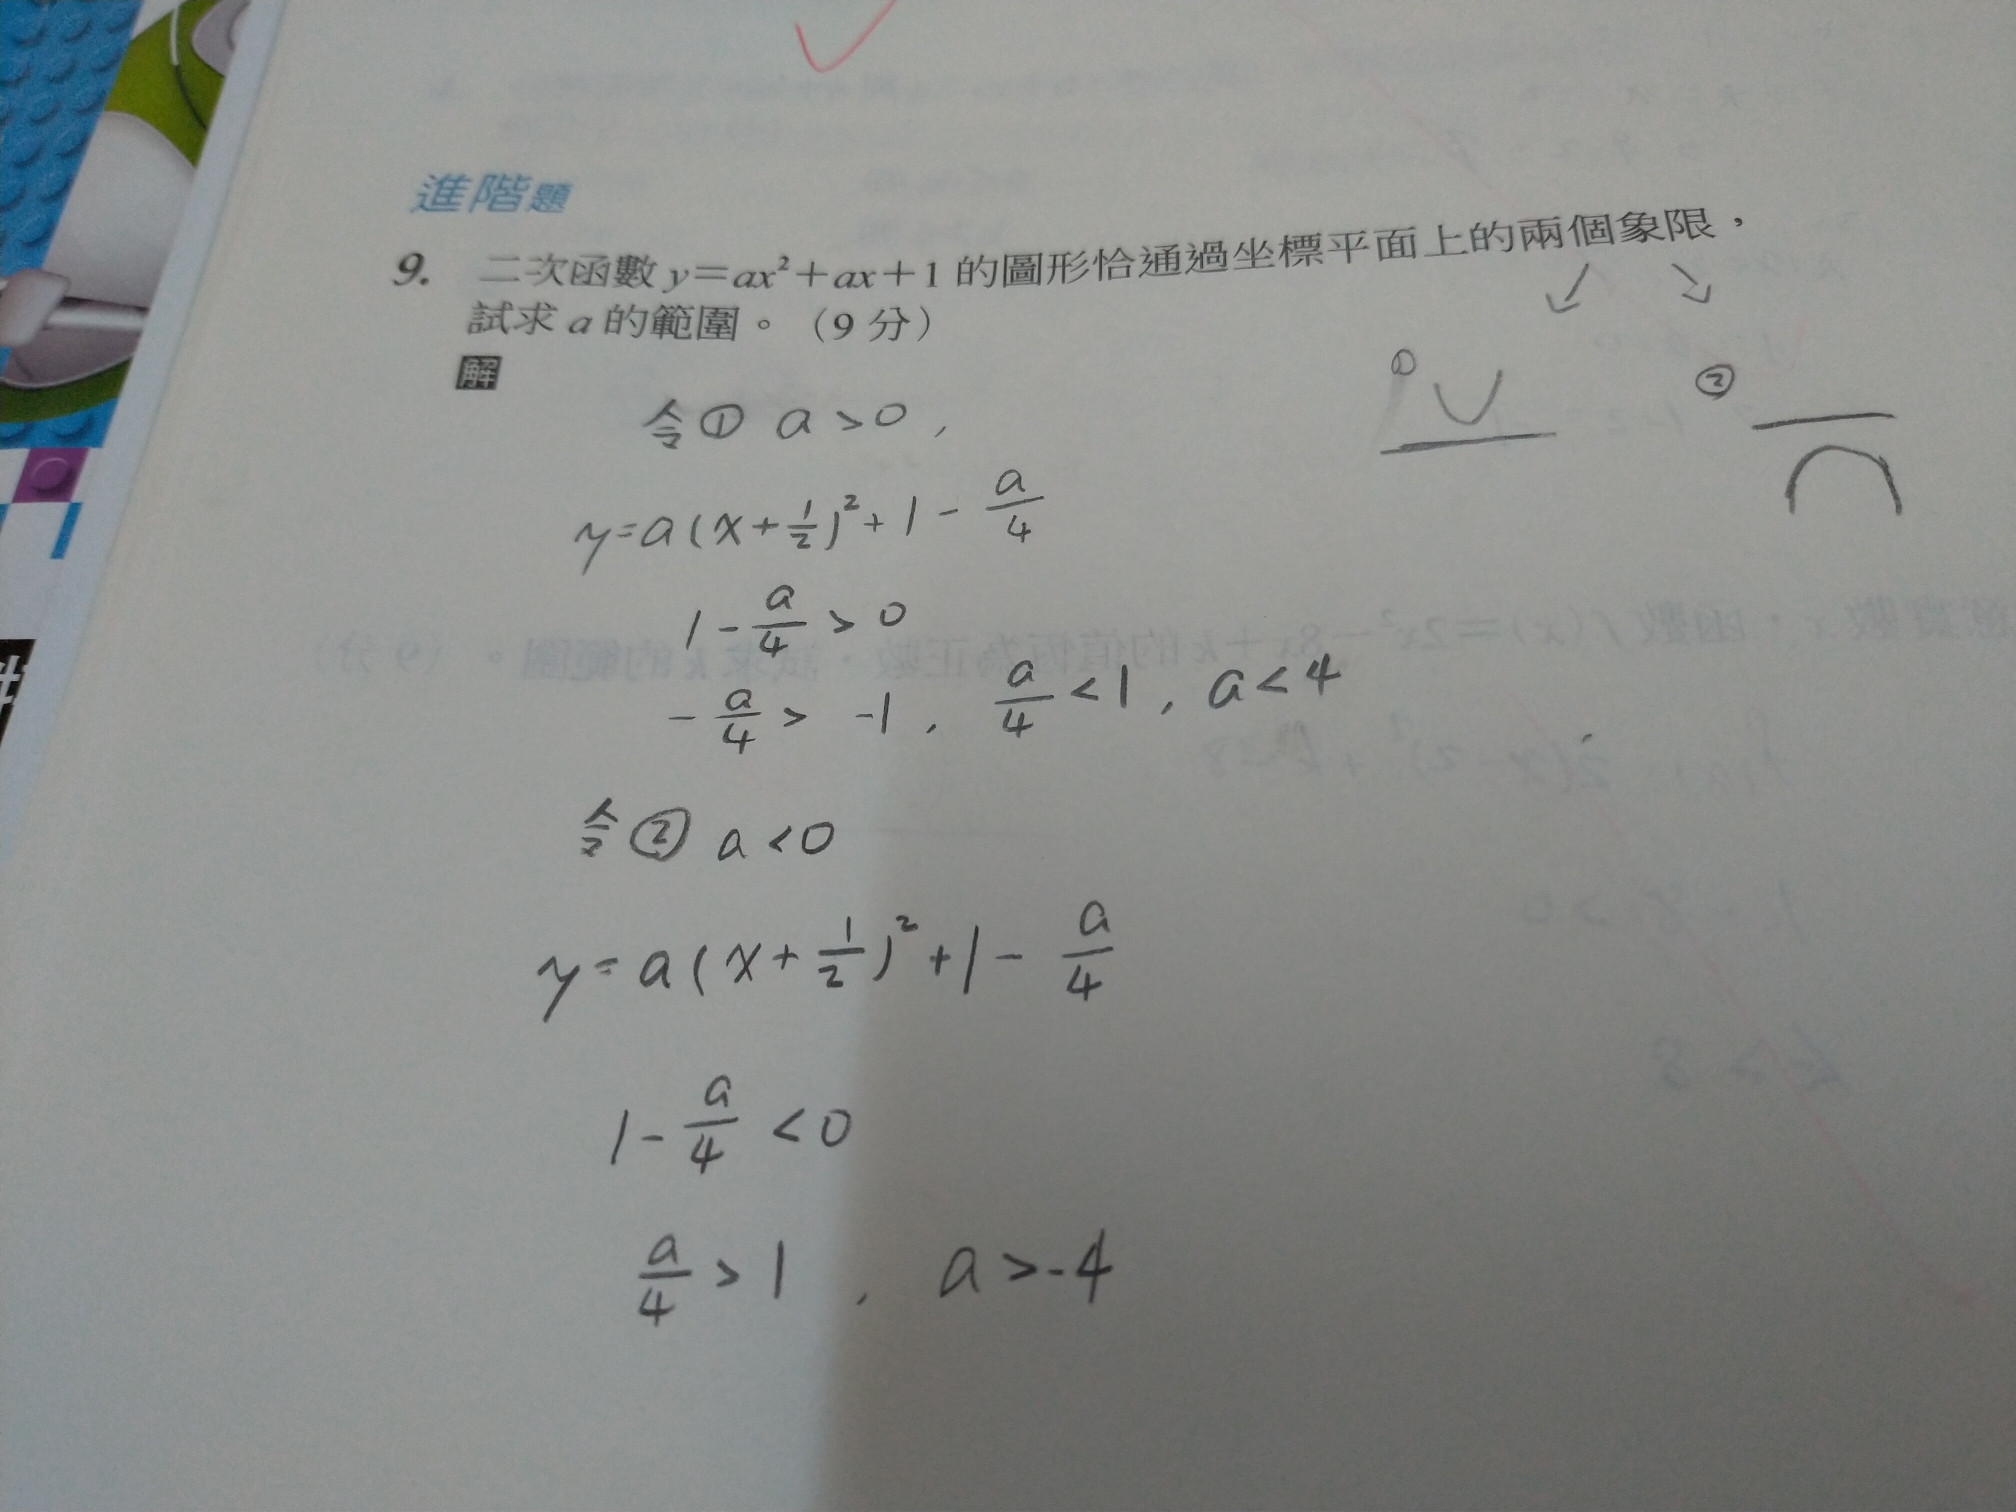 進階題
9. 二次函數 y=ax²+ax+1 的圖形恰通過坐標平面上的兩個象限，
試求 a 的範圍。（9 分）
解
① ②
令① a>0,
y=a(x+1/2)²+1-a/4
1-a/4>0
-a/4>-1, a/4<1, a<4
令② a<0
y=a(x+1/2)²+1-a/4
1-a/4<0
a/4>1, a>-4